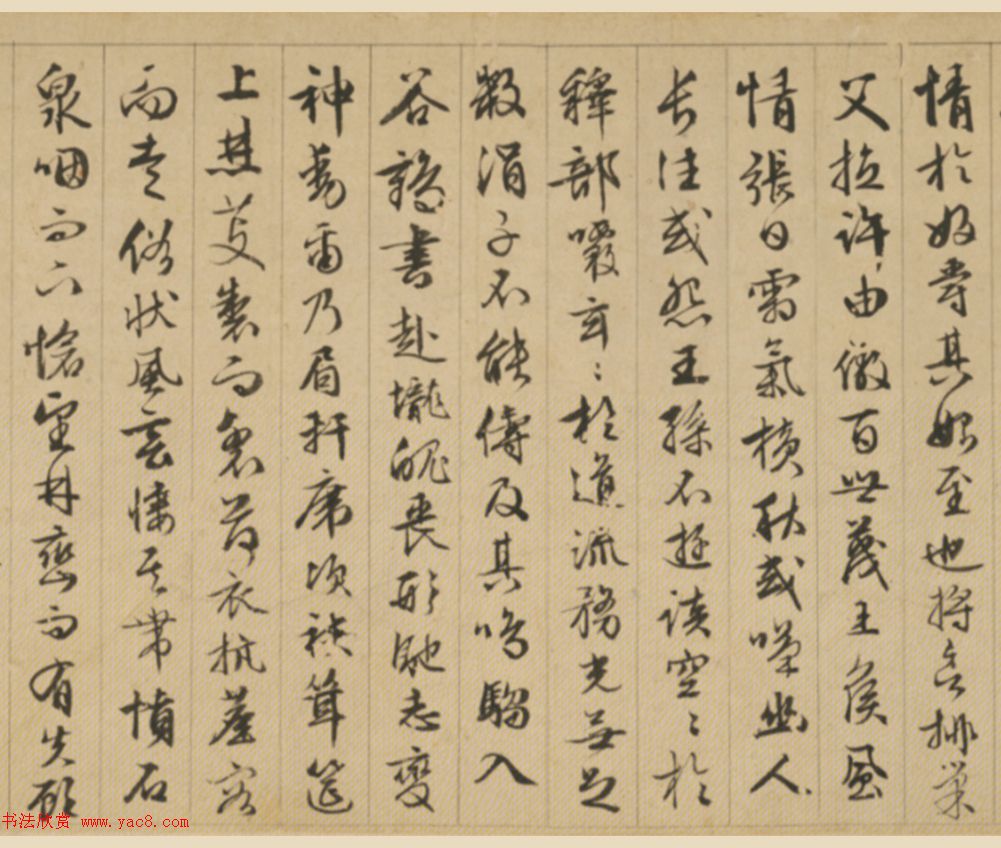 情於好爵其始至也將欲排巢
父拉許由傲百世蔑王侯風
情張日霜氣橫秋或嘆幽人
長往或怨王孫不遊談空〻於
釋部覈玄〻於道流務光無足
數涓子不能儔及其鳴騶入
谷鶴書赴壠魄喪形馳志變
神動爾乃眉軒席次袂聳筵
上焚芰製而裂荷衣抗塵容
而走俗狀風雲悽其帶憤石
泉咽而下愴望林巒而有失顧
书法欣赏 www.yac8.com